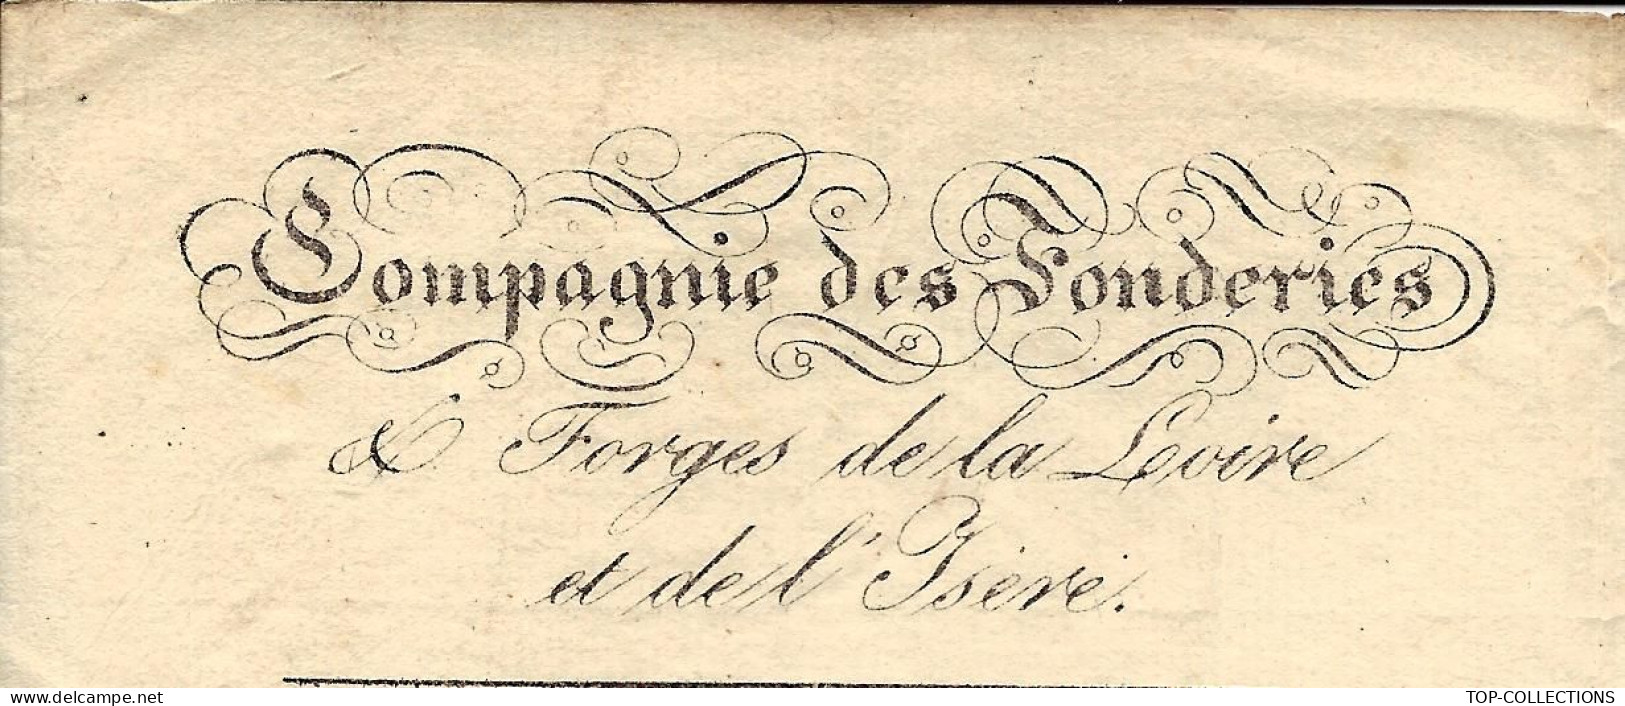 Compagnie des Fonderies
& Forges de la Loire
et de l'Isère.
www.delcampe.net
TOP-COLLECTIONS